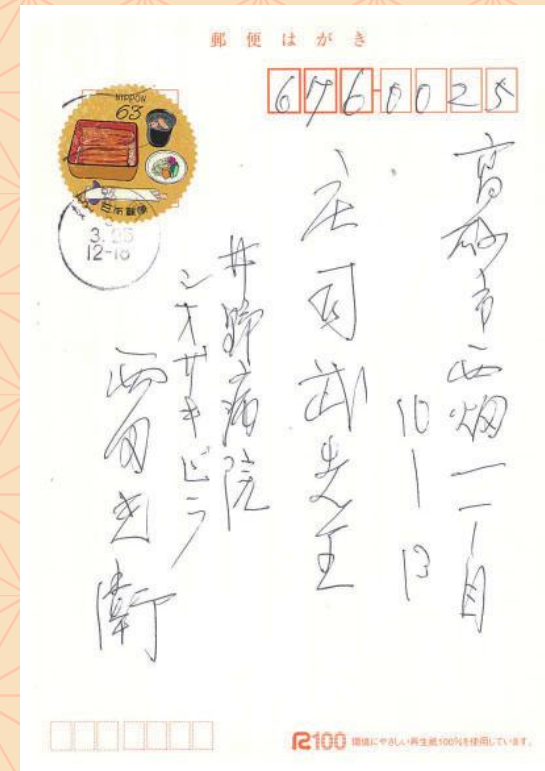 郵便はがき
NIPPON
63
日本郵便
3. 25
12-18
676-0025
高砂市西畑一丁目
10-13
庄司武先生
井野病院
シオサキビラ
西田光衛
R100 環境にやさしい再生紙100%を使用しています。